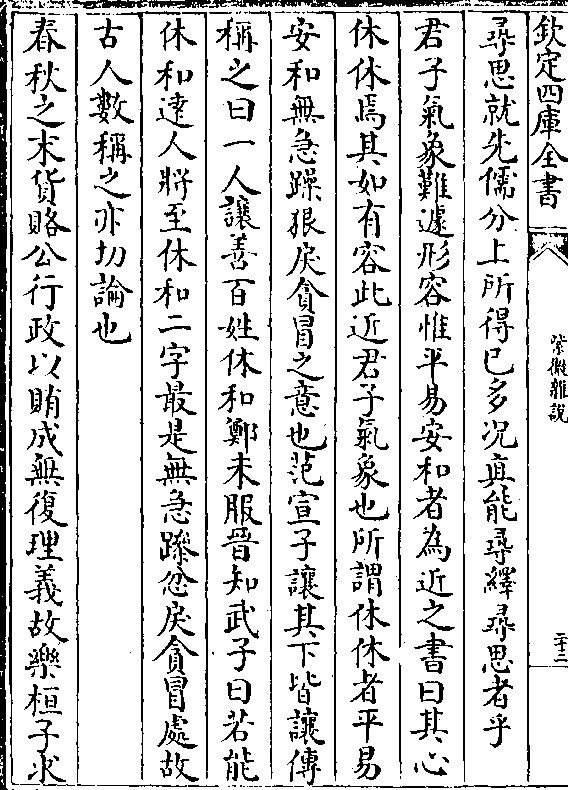 欽定四庫全書
紫微雜說
二十三
尋思就先儒分上所得已多况真能尋繹尋思者乎
君子氣象難遽形容惟平易安和者為近之書曰其心
休休焉其如有容此近君子氣象也所謂休休者平易
安和無急躁狠戾貪冒之意也范宣子讓其下皆讓傳
稱之曰一人讓善百姓休和鄭未服晉知武子曰若能
休和逺人將至休和二字最是無急躁忿戾貪冒處故
古人數稱之亦切論也
春秋之末貨賂公行政以賄成無復理義故樂桓子求